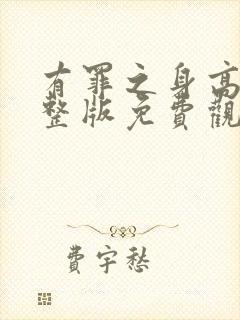 有罪之身高
整版免費觀
費宇愁